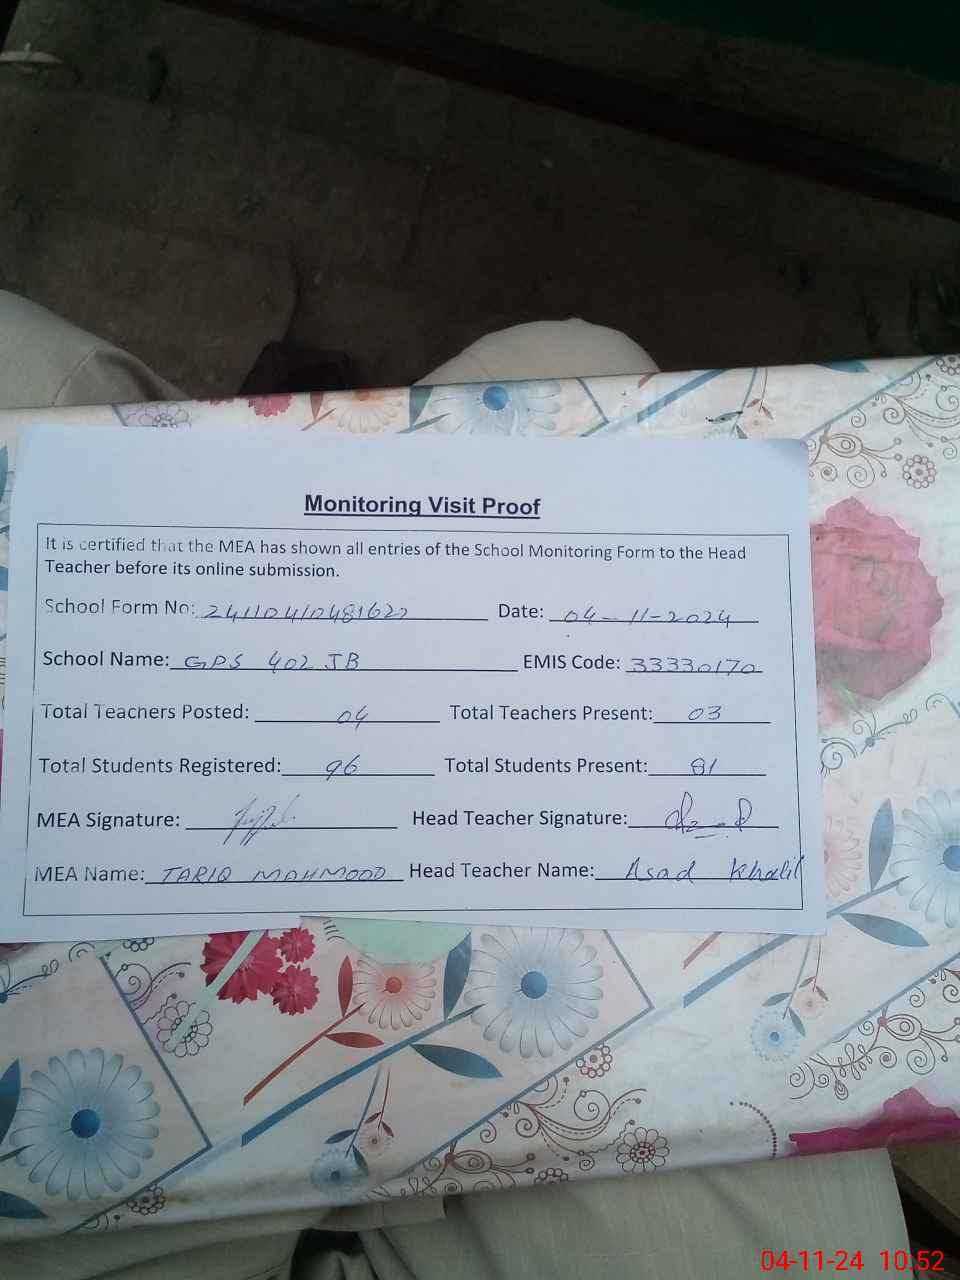 Monitoring Visit Proof
It is certified that the MEA has shown all entries of the School Monitoring Form to the Head
Teacher before its online submission.
School Form No: 24110410481622 Date: 04-11-2024
School Name: GPS 402 JB EMIS Code: 33330170
Total Teachers Posted: 04 Total Teachers Present: 03
Total Students Registered: 96 Total Students Present: 81
MEA Signature: Head Teacher Signature:
MEA Name: TARIQ MAHMOOD Head Teacher Name: Asad Khalil
04-11-24 10:52